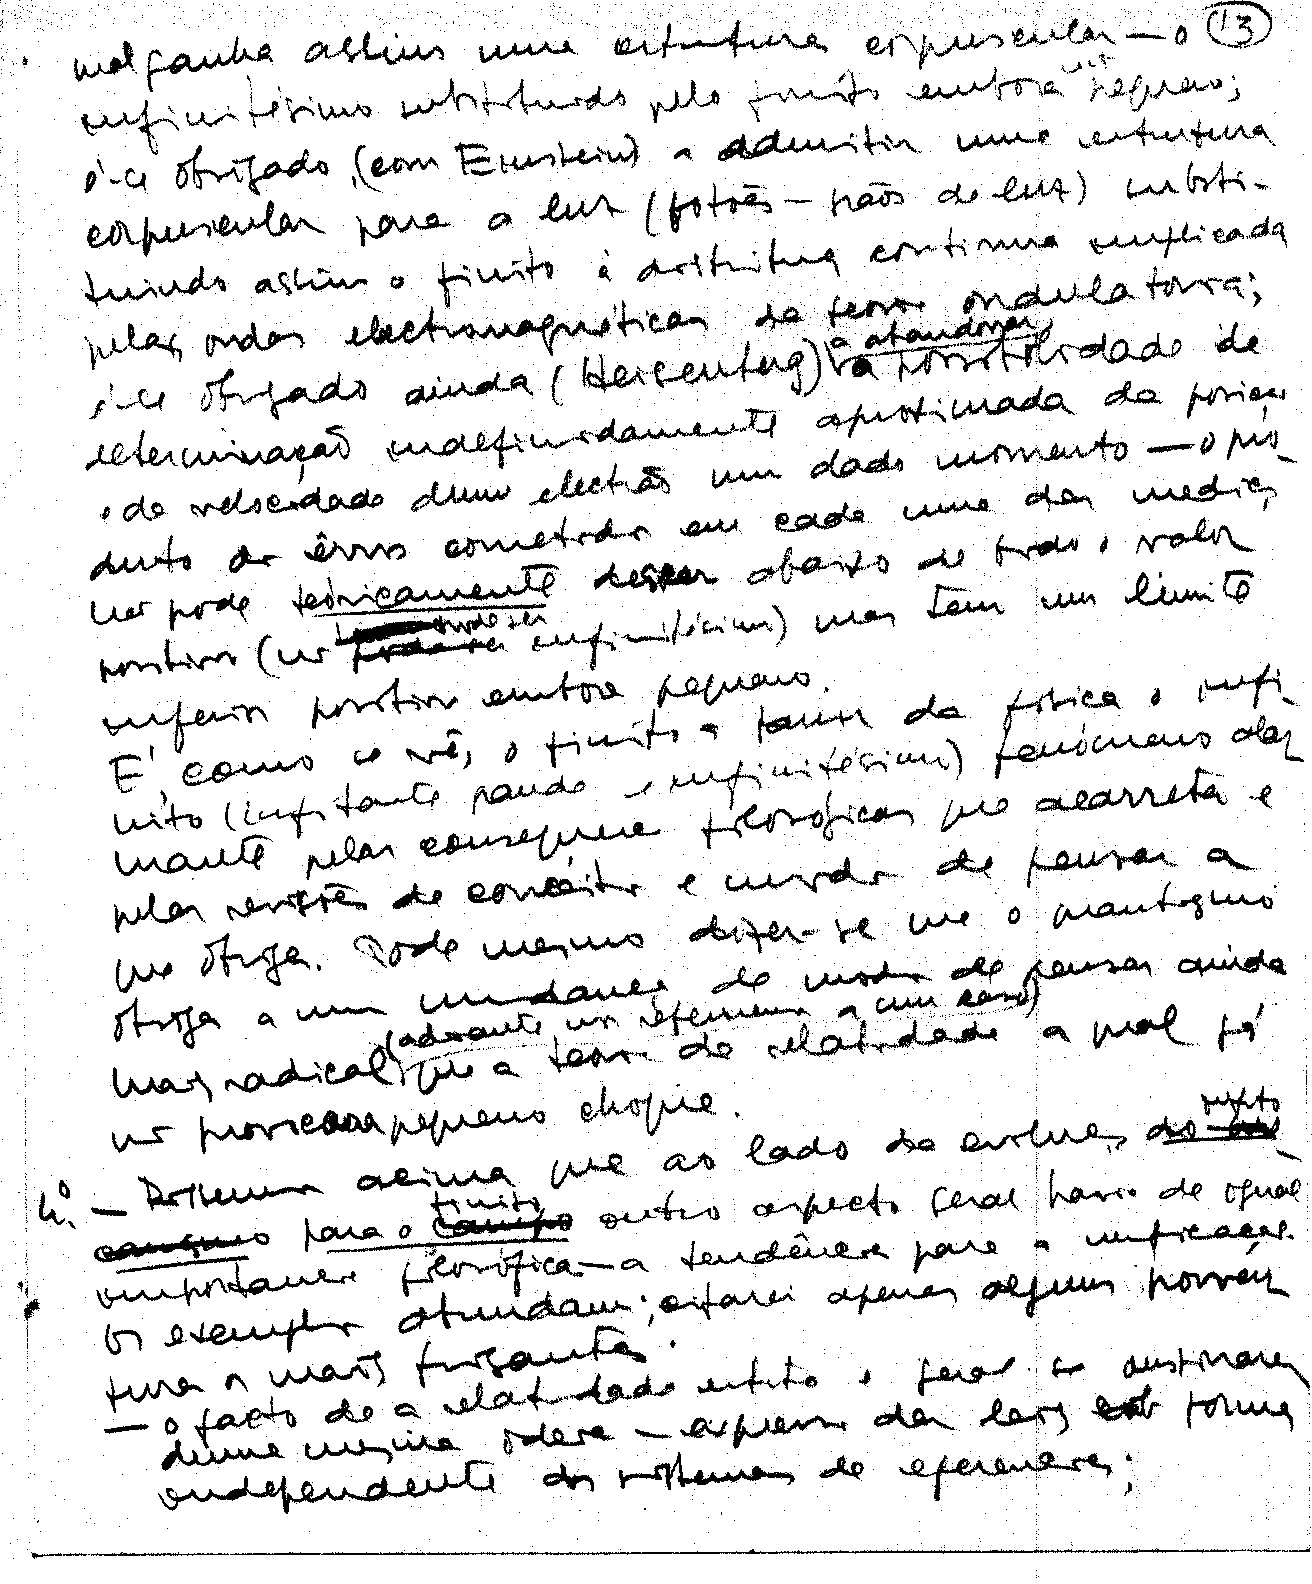 13
mal ganha assim uma estrutura corpuscular — o
infinitésimo substituido pelo finito embora mt pequeno;
é-se obrigado, (com Einstein) a admitir uma estrutura
corpuscular para a luz (fotões — grãos de luz) substi-
tuindo assim o finito à estrutura continua implicada
pelas ondas electromagnéticas da teoria ondulatoria;
é-se obrigado ainda (Heisenberg) a abandonar a possibilidade de
determinação indefinidamente aproximada da posição
e da velocidade dum electrão num dado momento — o pro-
duto dos êrros cometidos em cada uma das medições
não pode teòricamente descer abaixo de todo o valor
positivo (não pode ser infinitésimo) mas tem um limite
inferior positivo embora pequeno.
É, como se vê, o finito a banir da física o infi-
nito (infinitamente grande e infinitésimo) fenómeno alar-
mante pelas consequencias filosóficas que acarreta e
pelas revisões de conceitos e modos de pensar a
que obriga. Pode mesmo dizer-se que o quantismo
obriga a uma mudança de modos de pensar ainda
mais radical (adeante nos referiremos a um caso) que a teoria da relatividade a qual já
não provocara pequeno choque.
4.º — Dissemos acima que ao lado da evolução do infinito
para o finito outro aspecto geral havia de igual
importancia filosófica — a tendência para a unificação.
Os exemplos abundam; citarei apenas alguns porven-
tura os mais frisantes.
— o facto de a relatividade restrita e geral se unificarem
duma mesma ideia — expressão das leis sob forma
independente dos sistemas de referencia;